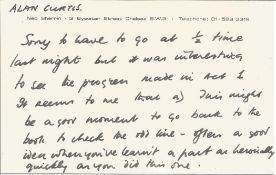 ALAN CURTIS.
Ned Sherrin · 3 Bywater Street Chelsea S.W.3 · Telephone: 01-589
Sorry to have to go at ½ time
last night but it was interesting
to see the progress made in Act 1
It seems to me that a) This might
be a good moment to go back to the
book to check the odd line - often a good
idea when you've learnt a part as heroically
quickly as you did this one.